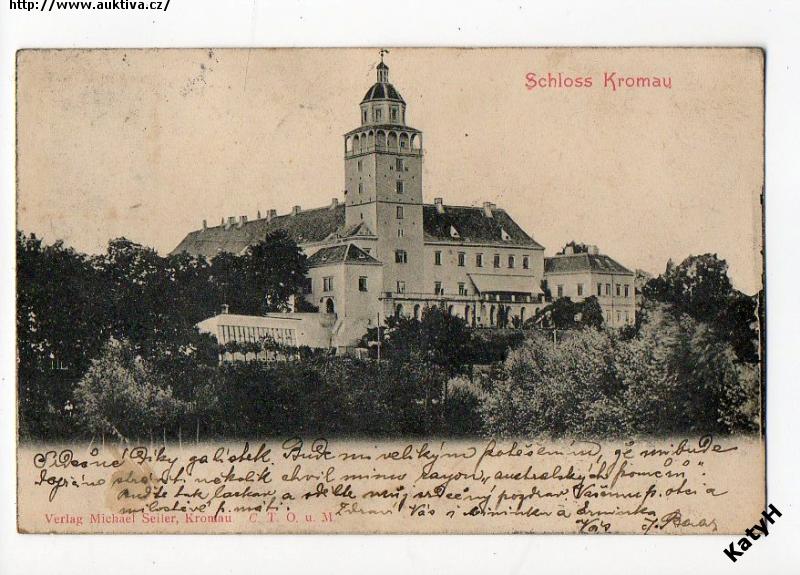 http://www.auktiva.cz/
Schloss Kromau
Srdečné díky za lístek Bude mi velikým potěšením, že mi bude
dopřáno stráviti několik chvil mimo rayon „australských poměrů“.
Buďte tak laskav a sdělte můj srdečný pozdrav Vašemu p. otci a
milostivé p. máti. Zdraví Vás i Arminka a Erminka
Verlag Michael Seiler, Kromau C. T. O. u. M.
Váš
KatyH